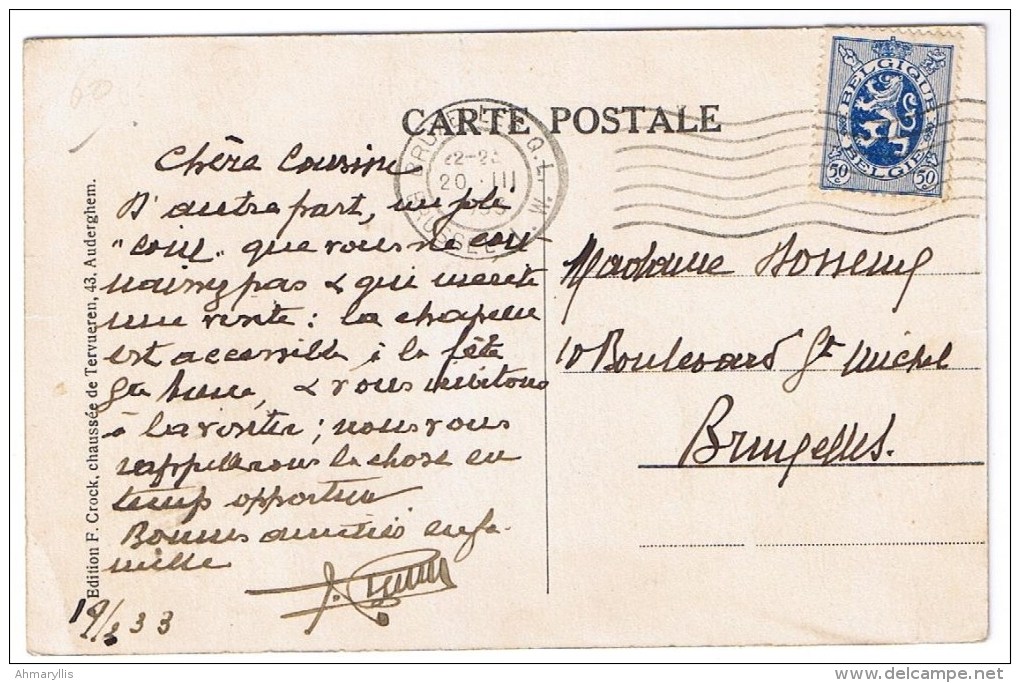 CARTE POSTALE
BELGIQUE
BELGIE
50 c
50 c
BRUXELLES Q.L.
22-23
20 III
1933
BRUSSEL L.W.
Edition F. Crock, chaussée de Tervueren, 43, Auderghem.
Chère Cousine
D'autre part, un joli
"coin" que vous ne con-
naissez pas & qui mérite
une visite: la chapelle
est accessible à la fête
Ste Anne, & vous invitons
à la visiter; nous vous
rappellerons la chose en
temps opportun
Bonnes amitiés en fa-
mille
19/3 33
Madame
10 Boulevard St Michel
Bruxelles.
Ahmaryllis
delcampe.net